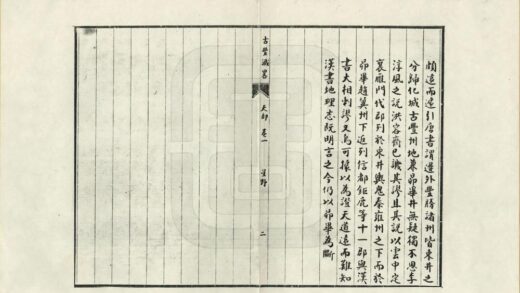 頗遠而遠引唐書謂邊外豐勝諸州皆東井之
分歸化城古豐州地兼昴畢井無疑獨不思李
淳風之說洪容齋已譏其謬且其說以雲中定
襄雁門代郡列於東井輿鬼秦雍州之下而於
昴畢趙冀州下近列信都鉅鹿等十一郡與漢
書大相剌謬又烏可據以為證天道遠而難知
漢書地理志既明言之今仍以昴畢為斷
古豐識畧
天部 卷一
星野
二